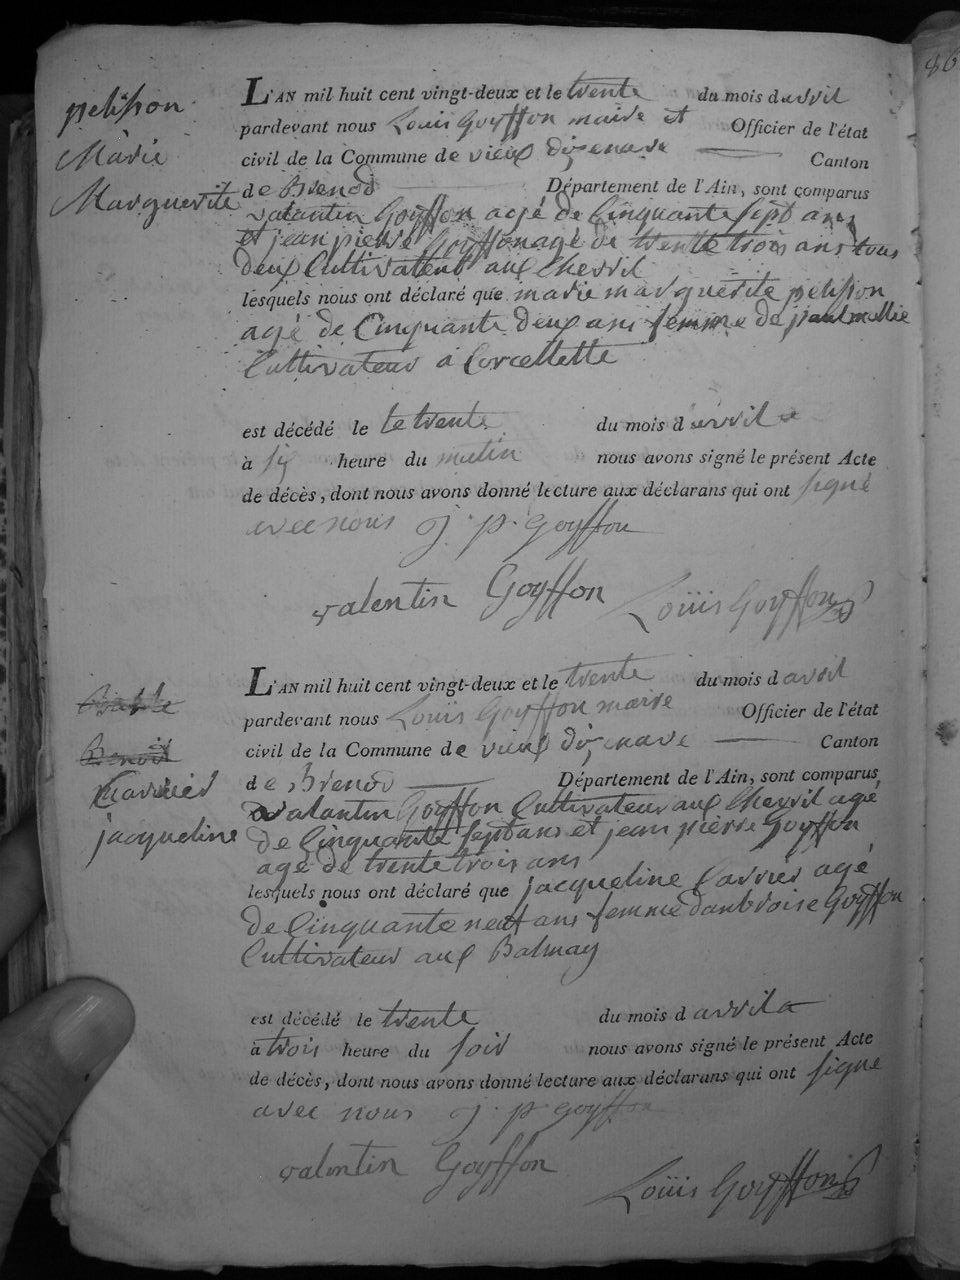 86
pelisson
Marie
Marguerite
L'AN mil huit cent vingt-deux et le trente du mois d avril
pardevant nous Louis Goyffon maire et Officier de l'état
civil de la Commune de vieux dizenave Canton
de Brenod Département de l'Ain, sont comparus
valantin Goyffon agé de Cinquante sept ans
et jean pierre Goyffon agé de trente trois ans tous
deux Cultivateur aux Chevril
lesquels nous ont déclaré que marie marguerite pelisson
agé de Cinquante deux ans femme de paul mellie
Cultivateur a Corcellette
est décédé le le trente du mois d avril a
à six heure du matin nous avons signé le présent Acte
de décès, dont nous avons donné lecture aux déclarans qui ont signé
avec nous j. p. goyffon
valentin Goyffon Louis Goyffon
Benoit
Carrier
jacqueline
L'AN mil huit cent vingt-deux et le trente du mois d avril
pardevant nous Louis Goyffon maire Officier de l'état
civil de la Commune de vieux dizenave Canton
de Brenod Département de l'Ain, sont comparus
valantin Goyffon Cultivateur aux Chevril agé
de Cinquante sept ans et jean pierre Goyffon
agé de trente trois ans
lesquels nous ont déclaré que jacqueline Carrier agé
de Cinquante neuf ans femme danbroise Goyffon
Cultivateur aux Balmay
est décédé le trente du mois d avril a
à trois heure du soir nous avons signé le présent Acte
de décès, dont nous avons donné lecture aux déclarans qui ont signé
avec nous j. p. goyffon
valentin Goyffon
Louis Goyffon